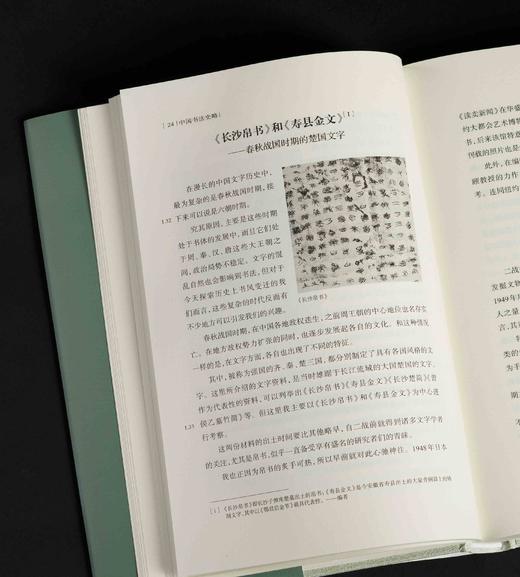 [ 24 ] 中国书法史略 |
《长沙帛书》和《寿县金文》[1]
——春秋战国时期的楚国文字
在漫长的中国文字历史中，
最为复杂的是春秋战国时期，接
1.32 下来可以说是六朝时期。
究其原因，主要是这些时期
处于书体的发展中，而且它们处
于周、秦、汉、唐这些大王朝之
间，政治局势不稳定。文字的混
乱自然也会影响到书法，但对于
今天探索历史上书风变迁的我
们而言，这些复杂的时代反而有
不少地方可以引发我们的兴趣。
《长沙帛书》
春秋战国时期，在中国各地政权迭生，之前周王朝的中心地位也名存实
亡。在地方政权势力扩张的同时，也逐步发展起各自的文化。和这种情况
一样的是，在文字方面，各自也出现了不同的特征。
其中，被称为强国的齐、秦、楚三国，都分别制定了具有各国风格的文
字。这里所介绍的文字资料，是当时雄踞于长江流域的大国楚国的文字。
作为代表性的资料，可以列举出《长沙帛书》《寿县金文》《长沙楚简》《曾
侯乙墓竹简》等。但这里我主要以《长沙帛书》和《寿县金文》为中心进
1.33 行考察。
这两份材料的出土时间要比其他略早，自二战前就得到诸多文字学者
的关注，尤其是帛书，似乎一直备受享有盛名的研究者们的青睐。
我也正因为帛书的炙手可热，所以早前就对此心驰神往。1948年日本
[1] 《长沙帛书》即长沙子弹库楚墓出土的帛书；《寿县金文》是今安徽省寿县出土的大量青铜器上的铭
刻文字，其中以《鄂君启金节》最具代表性。——编者
《读卖新闻》在华盛
约大都会艺术博物
书，后来该馆特意
刊载的照片也是
此外，在编
顾教授的力作
考。连同纽约
发掘文物
1949年
人之量
大，其
类的
为手
期